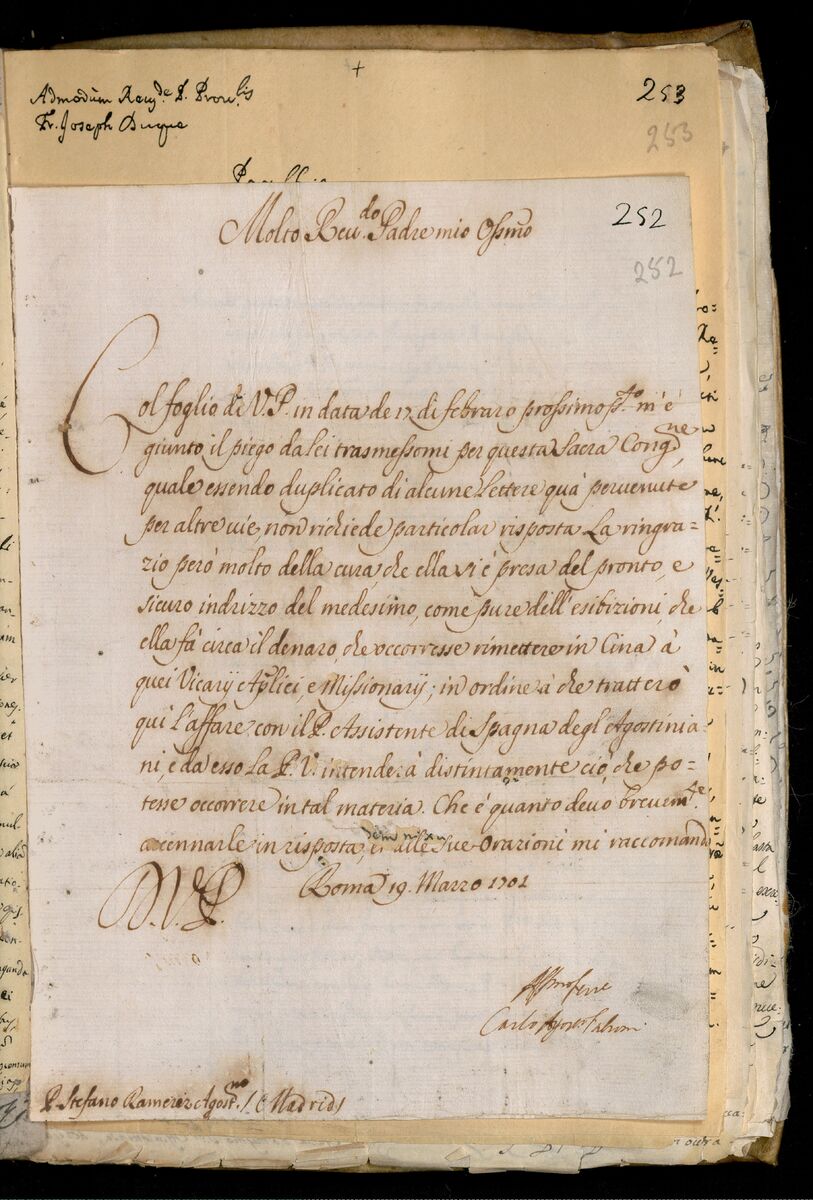 +
Admodum Reu.de P. Prou.lis
Fr. Joseph Duque
253
253
252
252
Molto Reu.do Padre mio Ossmo
Col foglio di V.P. in data de 17 di febraro prossimo pss.to m'è
giunto il piego da lei trasmessomi per questa Sacra Cong.ne,
quale essendo duplicato di alcune Lettere quà pervenute
per altre vie, non richiede particolar risposta. La ringra=
zio però molto della cura, che ella si è presa del pronto, e
sicuro indrizzo del medesimo, come pure dell'esibizioni, che
ella fà circa il denaro, che occorresse rimettere in Cina à
quei Vicarij Aplici, e Missionarij; in ordine à che tratterò
qui l'affare con il P. Assistente di Spagna degl'Agostinia=
ni, e da esso la P.V. intenderà distintamente ciò, che po=
tesse occorrere in tal materia. Che è quanto devo brevem.te
accennarle in risposta, et alle sue Orazioni mi raccomando
Roma 19. Marzo 1701
D.V.P.
Aff.mo serre
Carlo Agost.o Fabroni
P. Stefano Ramerez Agost.no / Madrid /